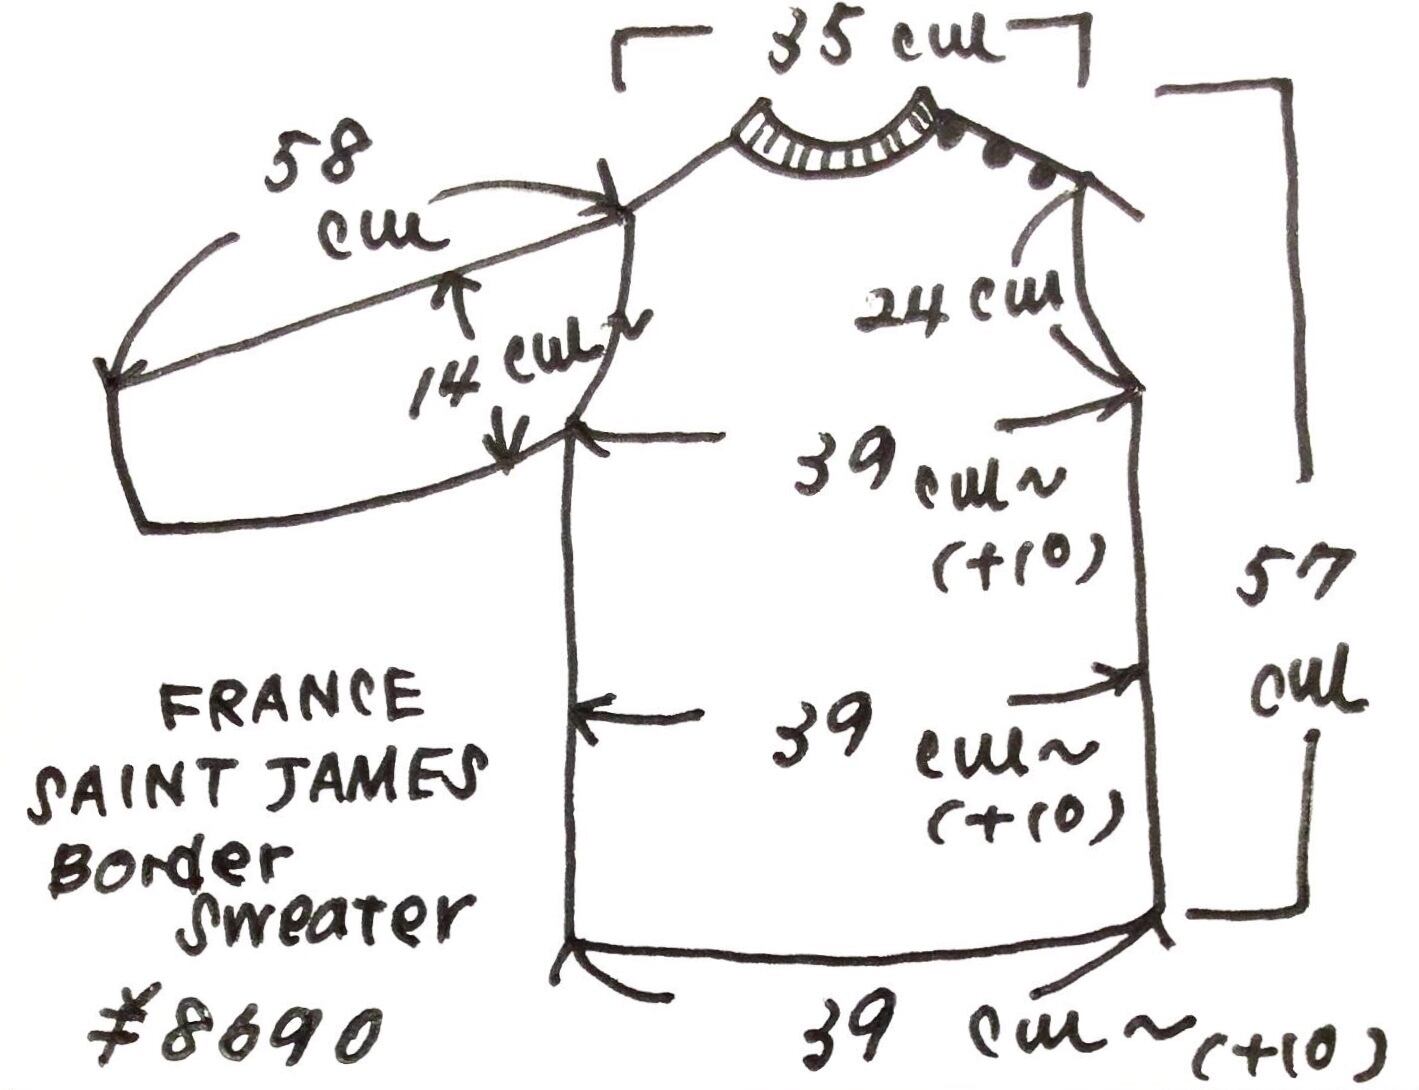 35 cm
58
cm
14 cm~
24 cm
39 cm~
(+10)
57
cm
39 cm~
(+10)
FRANCE
SAINT JAMES
Border
Sweater
¥8690
39 cm~(+10)